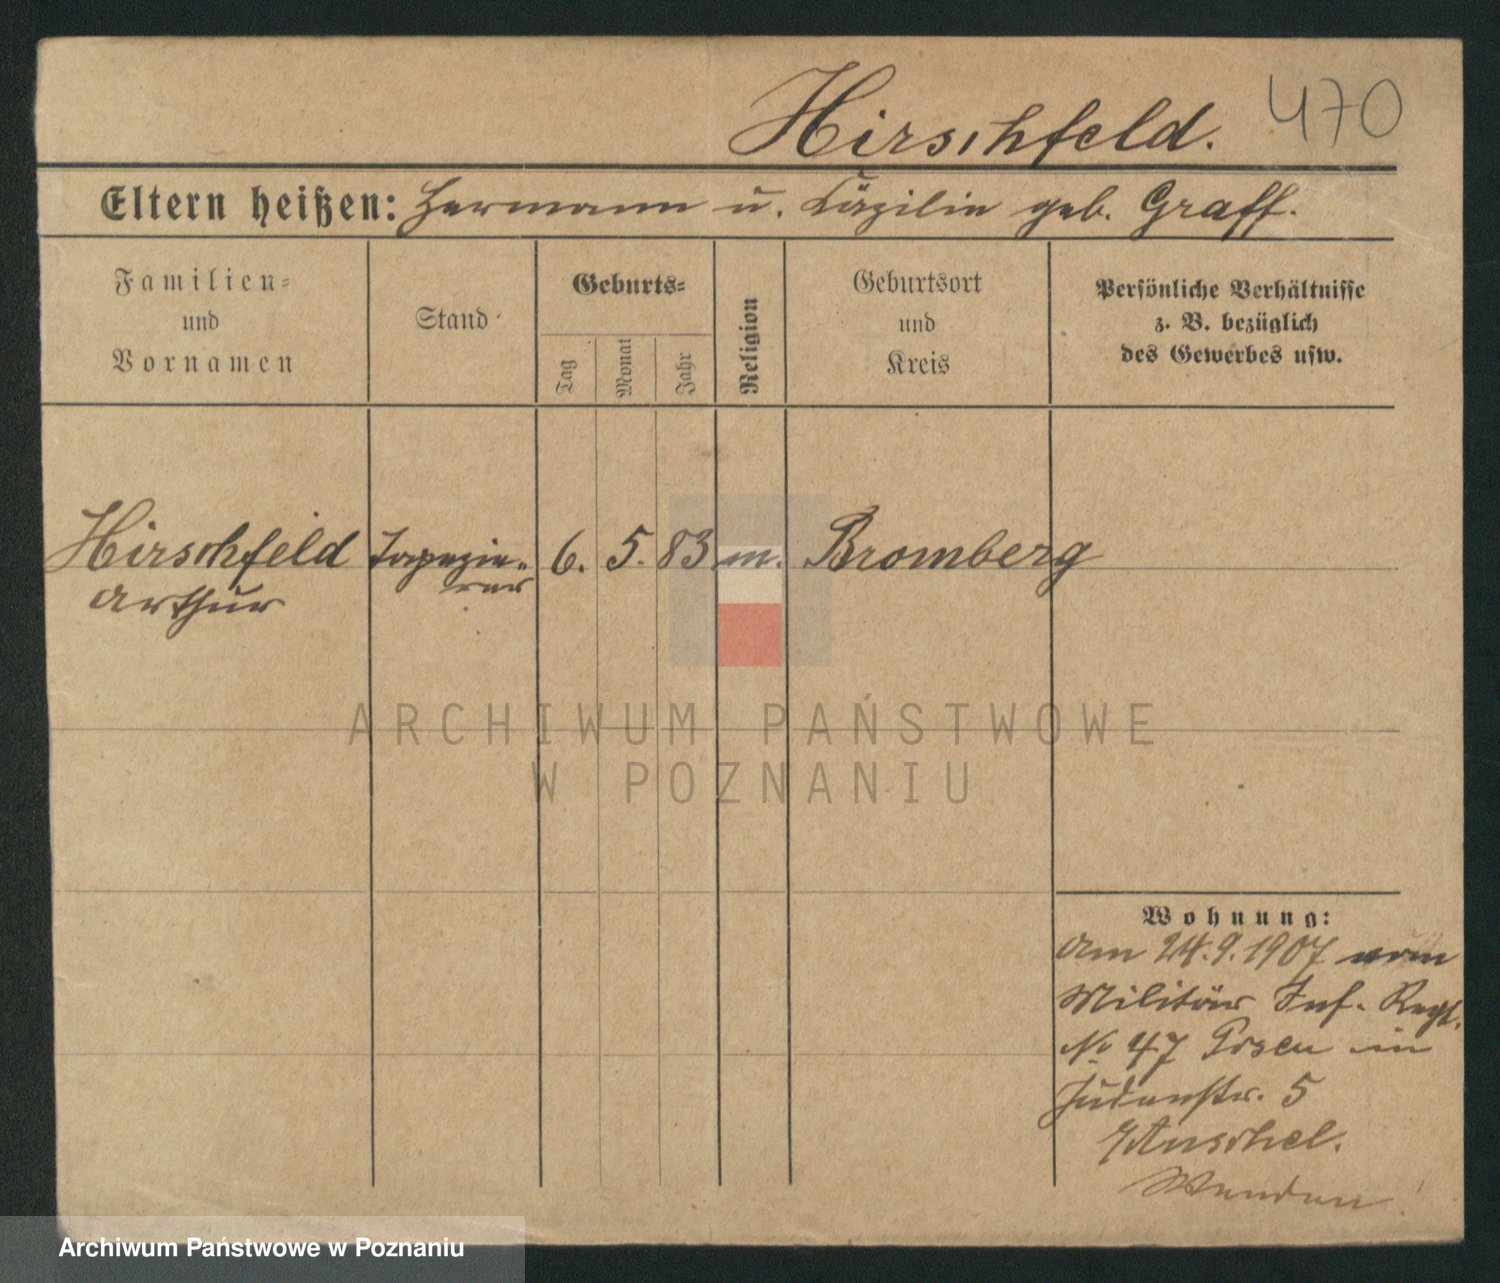 Hirschfeld. 470
Eltern heißen: Hermann u. Cäzilie geb. Graff.
Familien-
und
Vornamen
Stand
Geburts-
Tag
Monat
Jahr
Religion
Geburtsort
und
Kreis
Persönliche Verhältnisse
z. B. bezüglich
des Gewerbes usw.
Hirschfeld Tapezie- 6. 5. 83 m. Bromberg
Arthur rer
ARCHIWUM PAŃSTWOWE
W POZNANIU
Wohnung:
Am 24.9.1907 vom
Militär Inf. Regt.
No 47 Posen in
Judenstr. 5
Wenden!
Archiwum Państwowe w Poznaniu